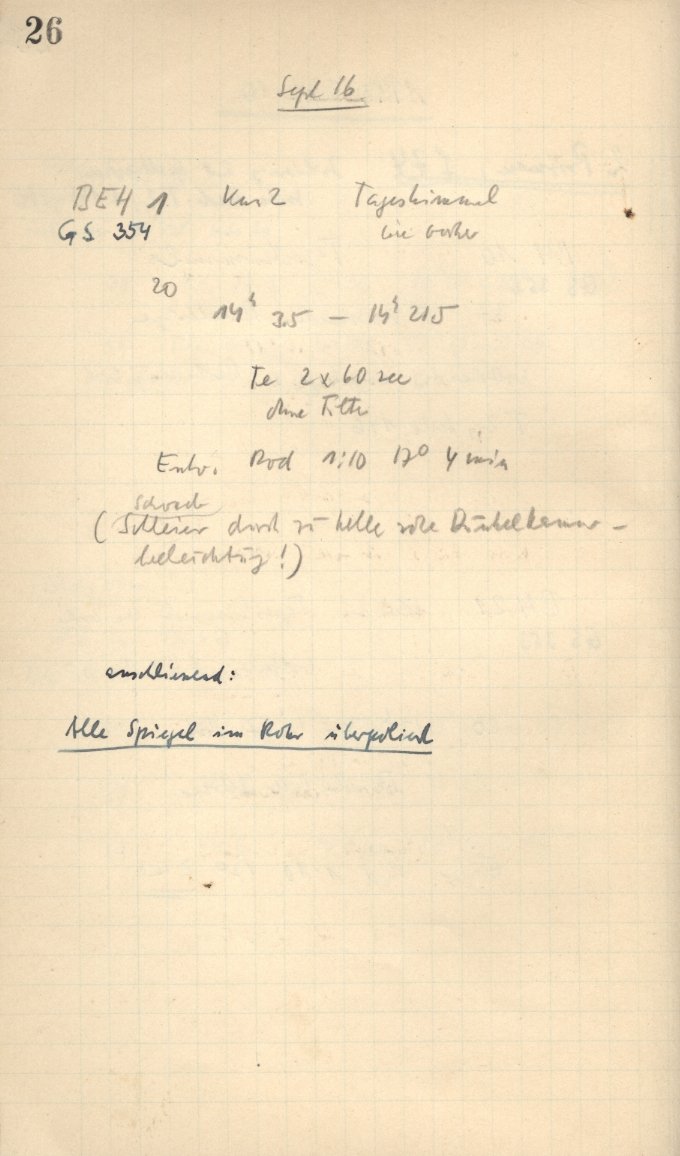 26
Sept 16.
BEH 1 Kurz Tageshimmel
GS 354 wie vorher
20
14h 35 — 14h 215
Te 2 x 60 sec
ohne Filter
Entw. Rod 1:10 17° 4 min
schwach
(Schleier durch zu helle rote Dunkelkammer-
beleuchtung!)
anschliessend:
Alle Spiegel im Rohr überpoliert